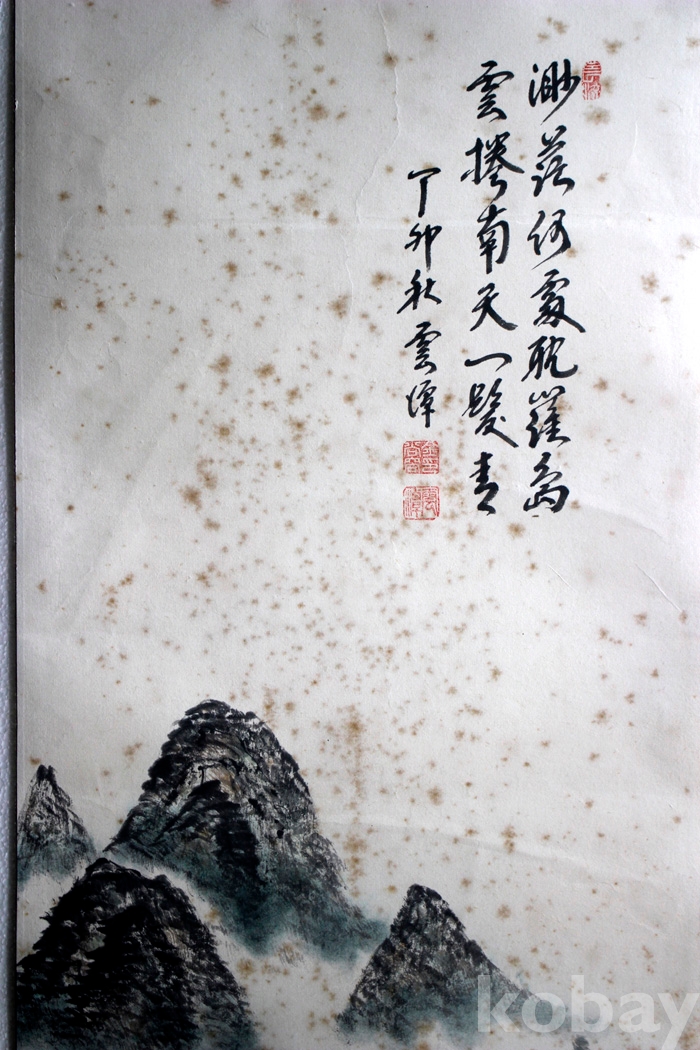 渺茫何處耽羅島
雲捲南天一髮青
丁卯秋雲潭
kobay